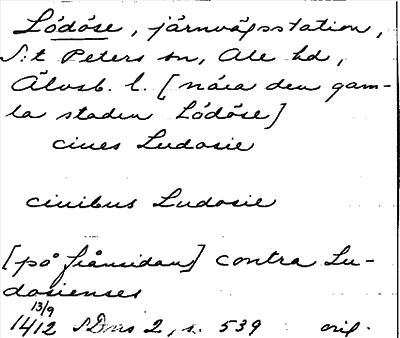 Lödöse, järnvägsstation,
S:t Peters sn, Ale hd,
Älvsb. l. [nära den gam-
la staden Lödöse]
cives Ludosie
civibus Ludosie
[på frånsidan] contra Lu-
dosienses
13/9
1412 SDns 2, s. 539 orig.